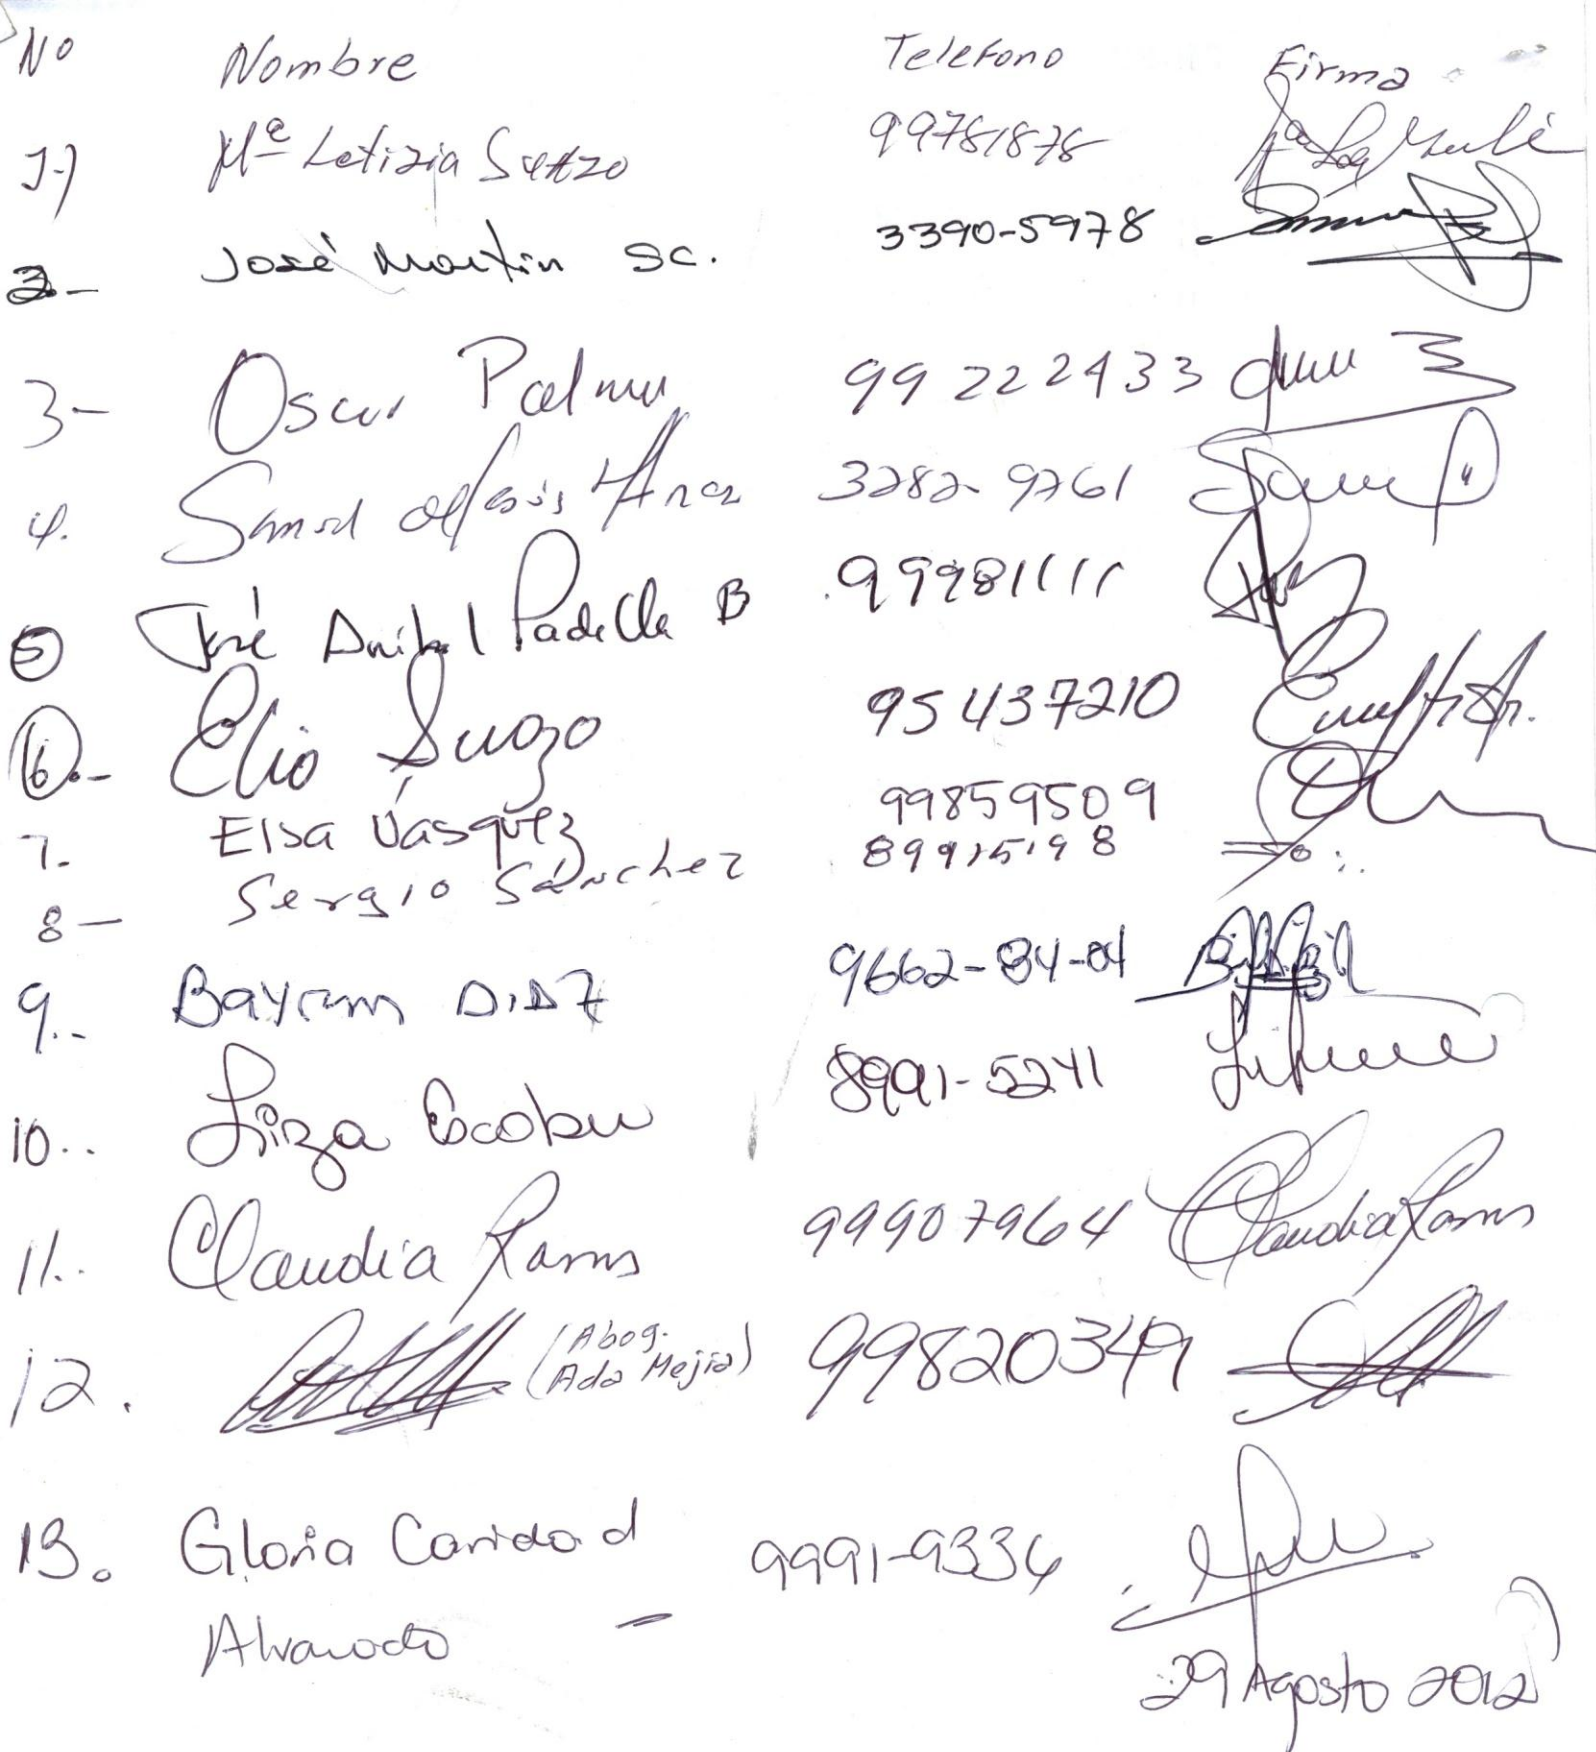 Nº Nombre Telefono Firma
1-) Mª Letizia Suazo 99781878
2.- José Martin SC. 3390-5978
3- Oscar Palma 99 222433
4. 3282-9761
5 José Anibal Padilla B 99981111
6.- Elio Suazo 95437210
7. Elsa Vasquez 99859509
8- Sergio Sánchez 89915198
9.. Bayron DiAZ 9662-84-04
10.. Liza Escobar 8991-5241
11.. Claudia Ramos 99907964 Claudia Ramos
12. (Abog. Ada Mejia) 99820349
13. Gloria Caridad 9991-9336
Alvarado -
29 Agosto 2012